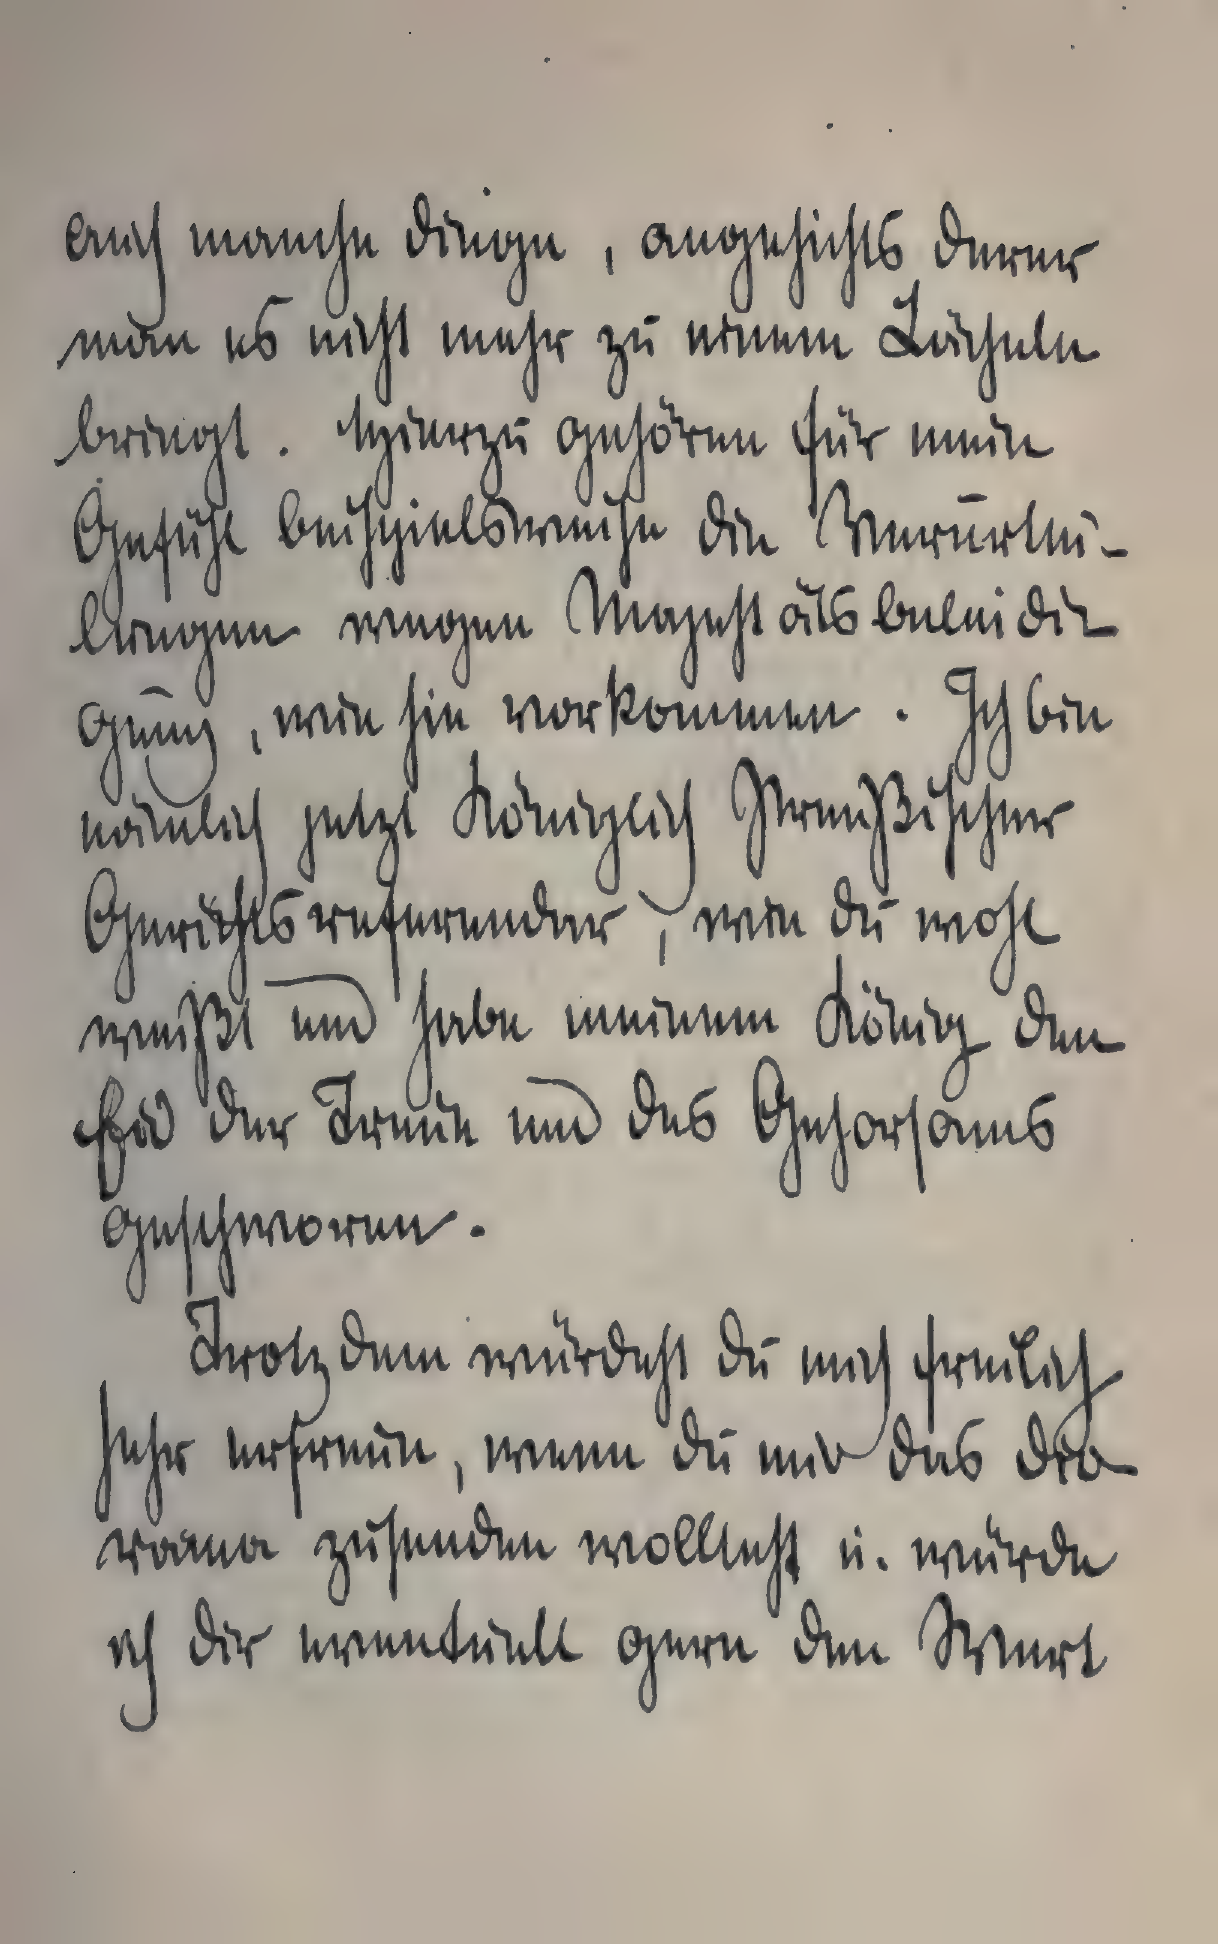 auch manche Dinge, angesichts derer
man es nicht mehr zu einem Lächeln
bringt. Hierzu gehören für mein
Gefühl beispielsweise die Verurtei-
lungen wegen Majestätsbeleidi-
gung, wie sie vorkommen. Ich bin
nämlich jetzt Königlich Preußischer
Gerichtsreferendar, wie du wohl
weißt und habe meinem König den
Eid der Treue und des Gehorsams
geschworen.
Trotzdem würdest du mich freilich
sehr erfreun, wenn du mir das
zusenden wolltest u. würde
ich dir eventuell gern den Wert